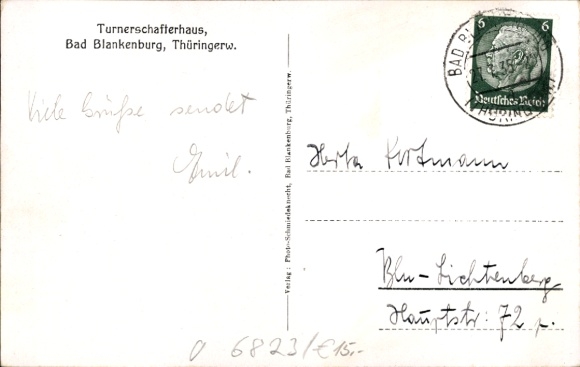 Turnerschafterhaus,
Bad Blankenburg, Thüringerw.
Viele Grüße sendet
Emil.
Verlag: Photo-Schmiedeknecht, Bad Blankenburg, Thüringerw.
6 6
Deutsches Reich
BAD
THÜRING
Herta Kortmann
Bln-Lichtenberg
Hauptstr. 72 p.
0 6823/€15.-